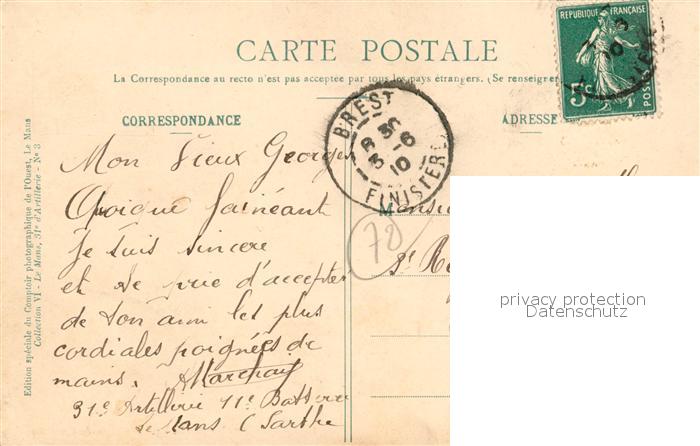 CARTE POSTALE
La Correspondance au recto n'est pas acceptée par tous les pays étrangers. (Se renseigner
CORRESPONDANCE
ADRESSE
REPUBLIQUE FRANÇAISE
5c
POSTES
BREST
8 30
3 - 6
10
FINISTERE
Edition spéciale du Comptoir photographique de l'Ouest, Le Mans
Collection VI - Le Mans, 31e d'Artillerie - No 3
Mon Vieux Georges
Quoique fainéant
Je suis sincere
et te prie d'accepter
de ton ami les plus
cordiales poignées de
mains.
31e Artillerie 11e Batterie
Le Mans (Sarthe
78
Monsieur
St
privacy protection
Datenschutz